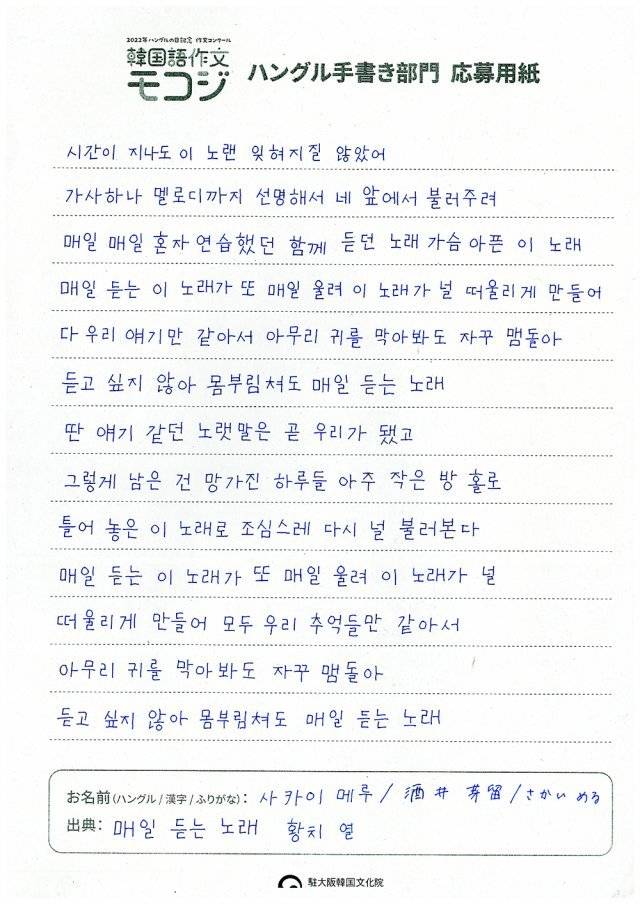 2022年ハングルの日記念 作文コンクール
韓国語作文
モコジ
ハングル手書き部門 応募用紙
시간이 지나도 이 노랜 잊혀지질 않았어
가사하나 멜로디까지 선명해서 네 앞에서 불러주려
매일 매일 혼자 연습했던 함께 듣던 노래 가슴 아픈 이 노래
매일 듣는 이 노래가 또 매일 울려 이 노래가 널 떠올리게 만들어
다 우리 얘기만 같아서 아무리 귀를 막아봐도 자꾸 맴돌아
듣고 싶지 않아 몸부림쳐도 매일 듣는 노래
딴 얘기 같던 노랫말은 곧 우리가 됐고
그렇게 남은 건 망가진 하루들 아주 작은 방 홀로
틀어 놓은 이 노래로 조심스레 다시 널 불러본다
매일 듣는 이 노래가 또 매일 울려 이 노래가 널
떠올리게 만들어 모두 우리 추억들만 같아서
아무리 귀를 막아봐도 자꾸 맴돌아
듣고 싶지 않아 몸부림쳐도 매일 듣는 노래
お名前(ハングル/漢字/ふりがな): 사카이 메루/酒井 芽留/さかい める
出典: 매일 듣는 노래 황치열
駐大阪韓国文化院